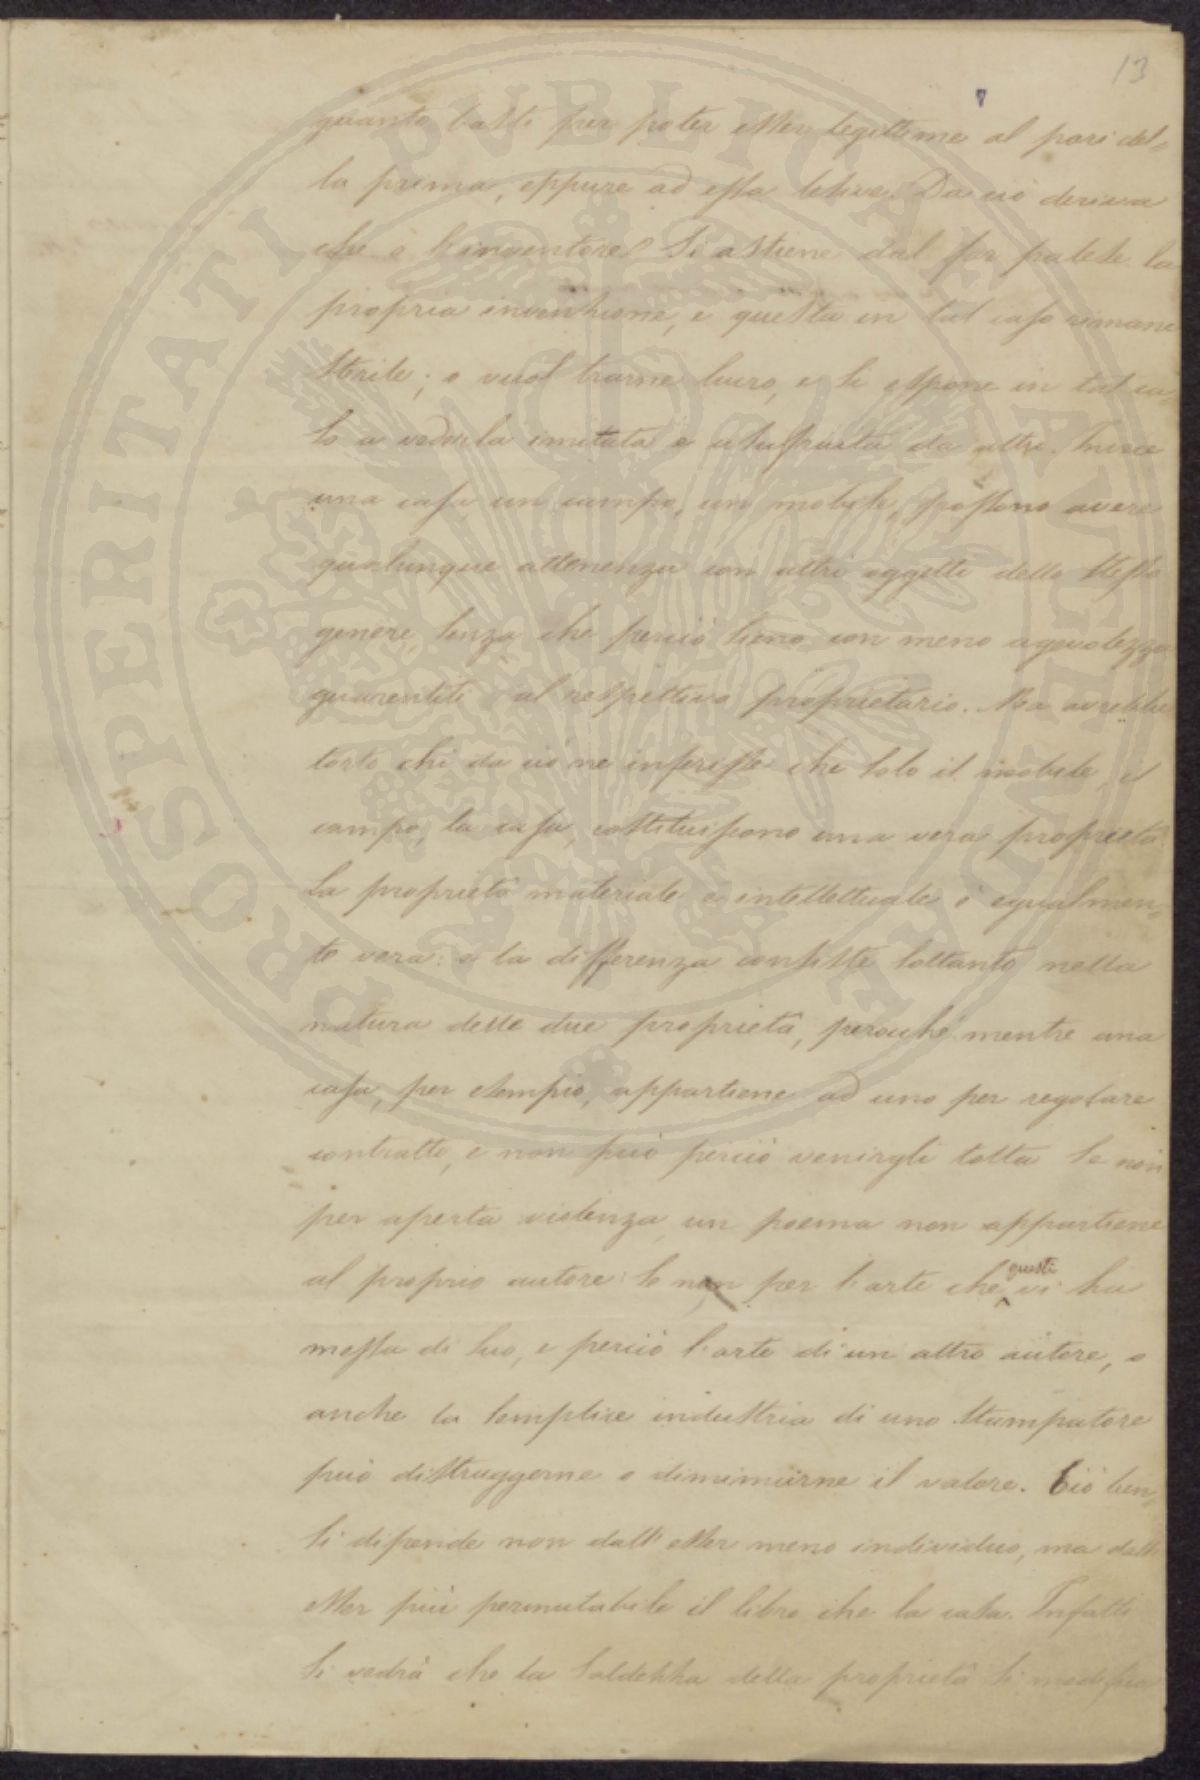 13
quanto basti per poter esser legittima al pari del=
la prima, eppure ad essa lesiva. Da ciò deriva
che o l'inventore si astiene dal far palese la
propria invenzione, e questa in tal caso rimane
sterile; o vuol trarne lucro, e si espone in tal ca=
so a vedersela imitata e usufruita da altri. Invece
una casa, un campo, un mobile, possono avere
qualunque attenenza con altri oggetti dello stesso
genere, senza che perciò sieno con meno agevolezza
guarentiti al respettivo proprietario. Ma avrebbe
torto chi da ciò ne inferisse che solo il mobile, il
campo, la casa, costituiscono una vera proprietà.
La proprietà materiale e intellettuale è egualmen=
te vera: e la differenza consiste soltanto nella
natura delle due proprietà, perocchè mentre una
casa, per esempio, appartiene ad uno per regolare
contratto, e non può perciò venirgli tolta se non
per aperta violenza, un poema non appartiene
al proprio autore se non per l'arte che questi vi ha
messa di suo, e perciò l'arte di un altro autore, o
anche la semplice industria di uno stampatore
può distruggerne o diminuirne il valore. Ciò ben=
sì dipende non dall'esser meno individuo, ma dall'
esser più permutabile il libro che la casa. Infatti
si vedrà che la saldezza della proprietà si modifica
PROSPERITATI PVBLICAE AVGENDAE